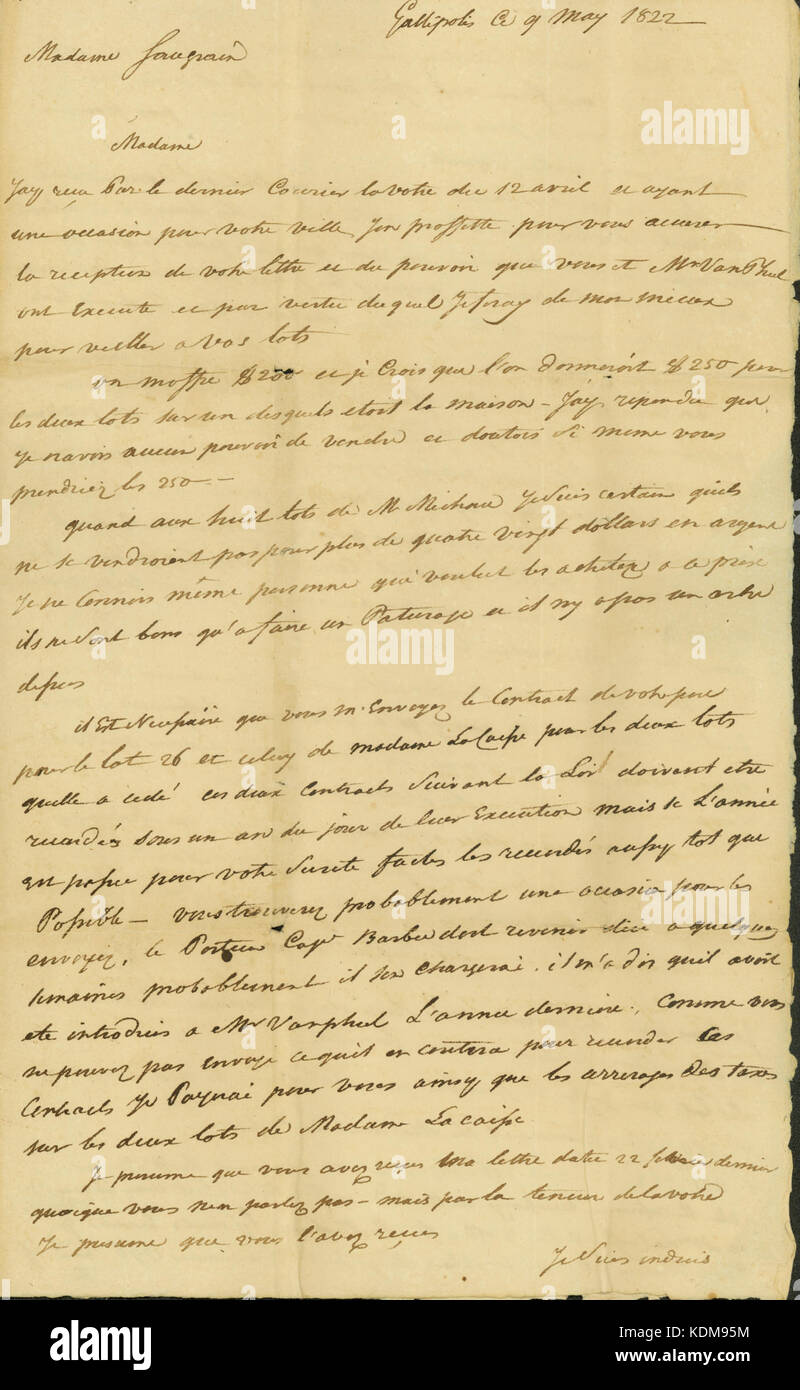 Gallipolis O 9 May 1822
Madame Saugrain
Madame
Jay reçu Par le dernier Courier la votre du 12 avril et ayant
une occasion pour votre ville J'en proffitte pour vous accuser
la reception de votre lettre et du pouvoir que vous et Mr Van Phul
ont Execute et par vertu duquel Je feray de mon mieux
pour veiller a vos lots
on m'offre $200 et je Crois que l'on donneroit $250 pour
les deux lots sur un desquels etoit la maison – Jay repondu que
Je n'avois aucun pouvoir de vendre et doutois si meme vous
prendriez les 250 –
quand aux huit lots de Mr Michau Je suis certain quils
ne se vendroient pas pour plus de quatre vingt dollars en argent
Je ne Connois même personne qui voulut les acheter a ce prix
ils ne sont bons qu'a faire un Paturage et il n'y a pas un arbre
depuis
il Est Necessaire que vous m'Envoyez le Contract de votre pere
pour le lot 26 et celuy de madame La Caisse pour les deux lots
quelle a cedé ces deux Contracts suivant la Loi doivent etre
recordés sous un an du jour de leur Execution mais si L'année
Est passée pour votre Sureté faites les recordés aussy tot que
Possible – vous trouverez probablement une occasion pour les
envoyez, le Porteur Capn Barbee doit revenir dici a quelques
semaines probablement il s'en chargerai, il m'a dit quil avoit
ete introduis a Mr Vanphul L'année derniere, Comme vous
ne pouvez pas envoye ce quil en coutera pour recorder ces
Contracts Je Payerai pour vous ainsy que les arrerages des taxes
sur les deux lots de Madame Lacaisse
Je presume que vous avez reçus ma lettre datée 22 dernier
quoique vous n'en parlez pas – mais par la teneur de la votre
Je presume que vous l'avez reçues
Je suis induis
alamy
Image ID: KDM95M
www.alamy.com